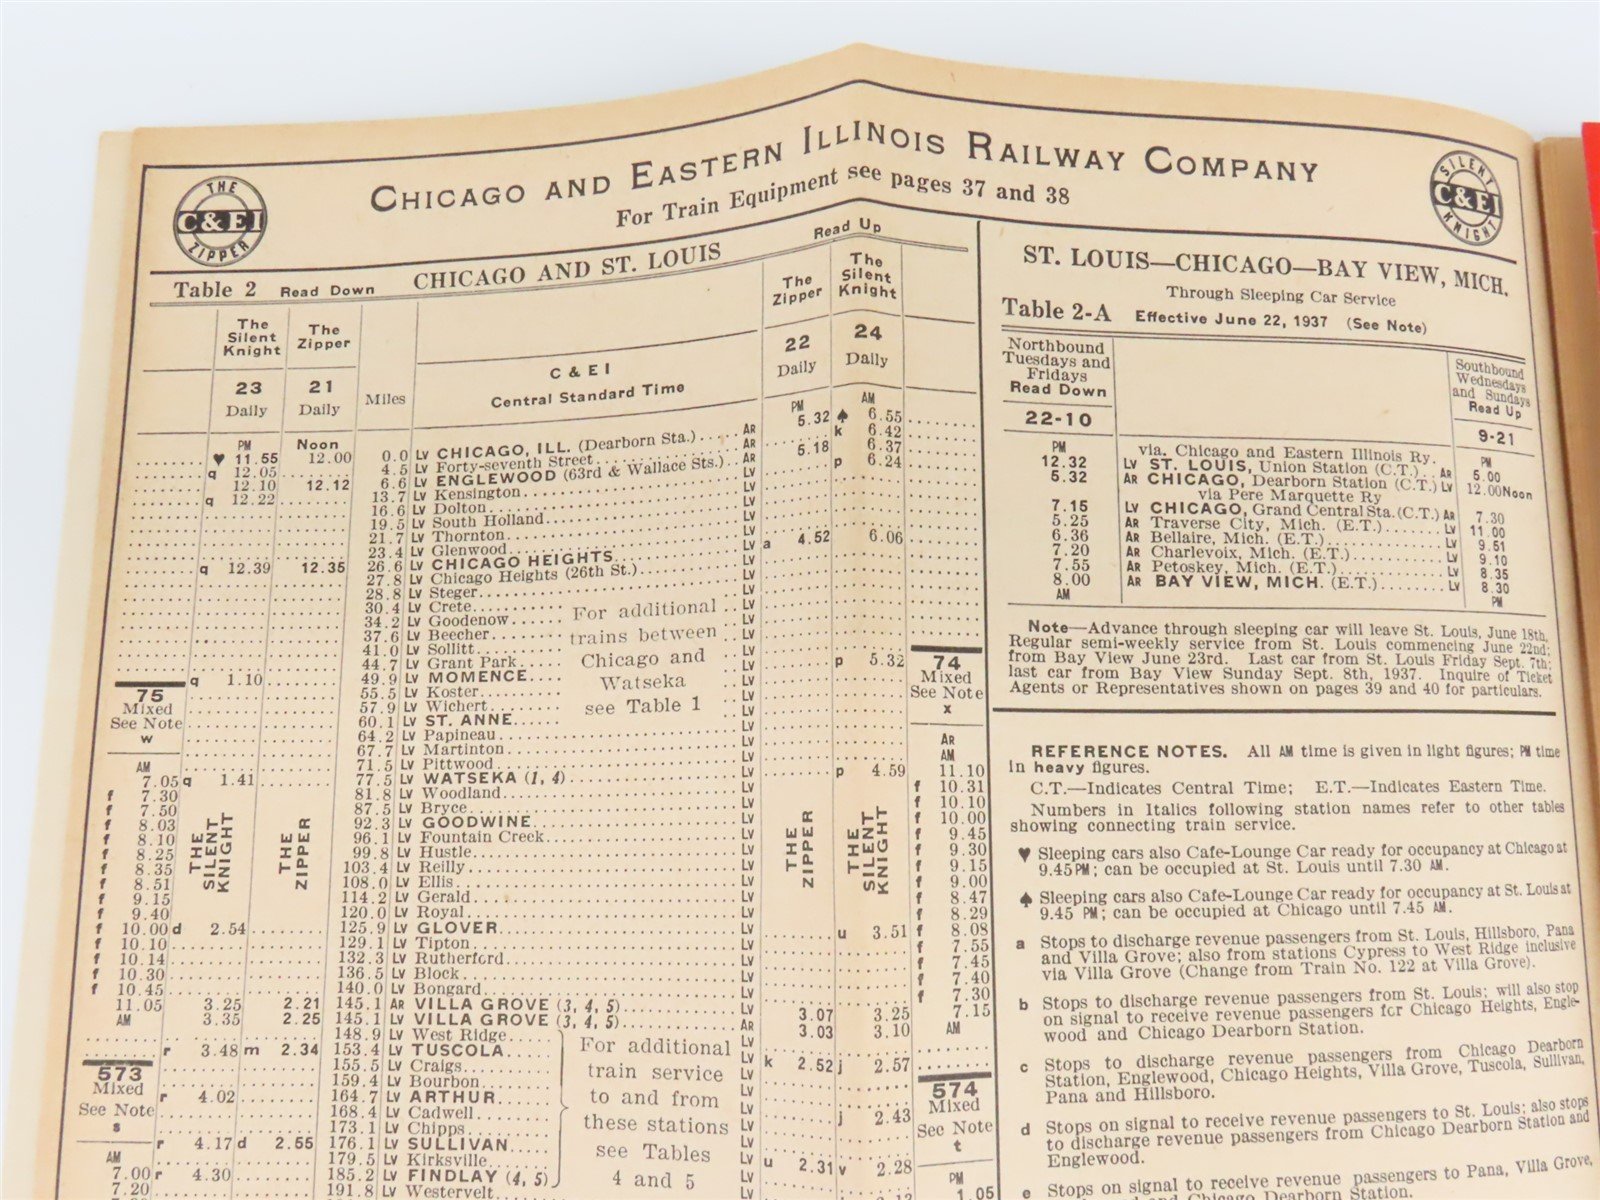 CHICAGO AND EASTERN ILLINOIS RAILWAY COMPANY
For Train Equipment see pages 37 and 38
THE C&EI ZIPPER
SILENT C&EI KNIGHT
Table 2 Read Down CHICAGO AND ST. LOUIS Read Up
The Silent Knight The Zipper The Zipper The Silent Knight
23 Daily 21 Daily Miles C & E I Central Standard Time 22 Daily 24 Daily
PM Noon PM AM
♥ 11.55 12.00 0.0 Lv CHICAGO, ILL. (Dearborn Sta.) Ar 5.32 ♠ 6.55
q 12.05 4.5 Lv Forty-seventh Street Ar k 6.42
12.10 12.12 6.6 Lv ENGLEWOOD (63rd & Wallace Sts.) Ar 5.18 6.37
q 12.22 13.7 Lv Kensington Lv p 6.24
16.6 Lv Dolton Lv
19.5 Lv South Holland Lv
21.7 Lv Thornton Lv
23.4 Lv Glenwood Lv
q 12.39 12.35 26.6 Lv CHICAGO HEIGHTS Lv a 4.52 6.06
27.8 Lv Chicago Heights (26th St.) Lv
28.8 Lv Steger Lv
30.4 Lv Crete Lv
34.2 Lv Goodenow Lv
37.6 Lv Beecher Lv
41.0 Lv Sollitt Lv
44.7 Lv Grant Park Lv
q 1.10 49.9 Lv MOMENCE Lv p 5.32
55.5 Lv Koster Lv
57.9 Lv Wichert Lv
60.1 Lv ST. ANNE Lv
64.2 Lv Papineau Lv
67.7 Lv Martinton Lv
71.5 Lv Pittwood Lv
For additional
trains between
Chicago and
Watseka
see Table 1
75
Mixed
See Note
w
AM
74
Mixed
See Note
x
Ar
AM
7.05 q 1.41 77.5 Lv WATSEKA (1, 4) Lv p 4.59 11.10
f 7.30 81.8 Lv Woodland Lv f 10.31
f 7.50 87.5 Lv Bryce Lv f 10.10
f 8.03 92.3 Lv GOODWINE Lv f 10.00
f 8.10 96.1 Lv Fountain Creek Lv f 9.45
f 8.25 99.8 Lv Hustle Lv f 9.30
f 8.35 103.4 Lv Reilly Lv f 9.15
f 8.51 108.0 Lv Ellis Lv f 9.00
f 9.15 114.2 Lv Gerald Lv f 8.47
f 9.40 120.0 Lv Royal Lv f 8.29
f 10.00 d 2.54 125.9 Lv GLOVER Lv u 3.51 f 8.08
f 10.10 129.1 Lv Tipton Lv f 7.55
f 10.14 132.3 Lv Rutherford Lv f 7.45
f 10.30 136.5 Lv Block Lv f 7.40
f 10.45 140.0 Lv Bongard Lv f 7.30
11.05 3.25 2.21 145.1 Ar VILLA GROVE (3, 4, 5) Lv 3.07 3.25 7.15
AM 3.35 2.25 145.1 Lv VILLA GROVE (3, 4, 5) Ar 3.03 3.10 AM
THE SILENT KNIGHT
THE ZIPPER
THE ZIPPER
THE SILENT KNIGHT
148.9 Lv West Ridge Lv
r 3.48 m 2.34 153.4 Lv TUSCOLA Lv k 2.52 j 2.57
155.5 Lv Craigs Lv
159.4 Lv Bourbon Lv
r 4.02 164.7 Lv ARTHUR Lv j 2.43
168.4 Lv Cadwell Lv
173.1 Lv Chipps Lv
r 4.17 d 2.55 176.1 Lv SULLIVAN Lv u 2.31 v 2.28
179.5 Lv Kirksville Lv
7.00 r 4.30 185.2 Lv FINDLAY (4, 5) Lv
7.20 191.8 Lv Westervelt 1.05
For additional
train service
to and from
these stations
see Tables
4 and 5
573
Mixed
See Note
s
AM
574
Mixed
See Note
t
PM
ST. LOUIS—CHICAGO—BAY VIEW, MICH.
Through Sleeping Car Service
Table 2-A Effective June 22, 1937 (See Note)
Northbound Tuesdays and Fridays Read Down
Southbound Wednesdays and Sundays Read Up
22-10 9-21
PM via. Chicago and Eastern Illinois Ry. PM
12.32 Lv ST. LOUIS, Union Station (C.T.) Ar 5.00
5.32 Ar CHICAGO, Dearborn Station (C.T.) Lv 12.00 Noon
via Pere Marquette Ry
7.15 Lv CHICAGO, Grand Central Sta. (C.T.) Ar 7.30
5.25 Ar Traverse City, Mich. (E.T.) Lv 11.00
6.36 Ar Bellaire, Mich. (E.T.) Lv 9.51
7.20 Ar Charlevoix, Mich. (E.T.) Lv 9.10
7.55 Ar Petoskey, Mich. (E.T.) Lv 8.35
8.00 Ar BAY VIEW, MICH. (E.T.) Lv 8.30
AM PM
Note—Advance through sleeping car will leave St. Louis, June 18th,
Regular semi-weekly service from St. Louis commencing June 22nd;
from Bay View June 23rd. Last car from St. Louis Friday Sept. 7th;
last car from Bay View Sunday Sept. 8th, 1937. Inquire of Ticket
Agents or Representatives shown on pages 39 and 40 for particulars.
REFERENCE NOTES. All AM time is given in light figures; PM time
in heavy figures.
C.T.—Indicates Central Time; E.T.—Indicates Eastern Time.
Numbers in Italics following station names refer to other tables
showing connecting train service.
♥ Sleeping cars also Cafe-Lounge Car ready for occupancy at Chicago at
9.45 PM; can be occupied at St. Louis until 7.30 AM.
♠ Sleeping cars also Cafe-Lounge Car ready for occupancy at St. Louis at
9.45 PM; can be occupied at Chicago until 7.45 AM.
a Stops to discharge revenue passengers from St. Louis, Hillsboro, Pana
and Villa Grove; also from stations Cypress to West Ridge inclusive
via Villa Grove (Change from Train No. 122 at Villa Grove).
b Stops to discharge revenue passengers from St. Louis; will also stop
on signal to receive revenue passengers for Chicago Heights, Engle-
wood and Chicago Dearborn Station.
c Stops to discharge revenue passengers from Chicago Dearborn
Station, Englewood, Chicago Heights, Villa Grove, Tuscola, Sullivan,
Pana and Hillsboro.
d Stops on signal to receive revenue passengers to St. Louis; also stops
to discharge revenue passengers from Chicago Dearborn Station and
Englewood.
e Stops on signal to receive revenue passengers to Pana, Villa Grove,
Chicago Dearborn Station.